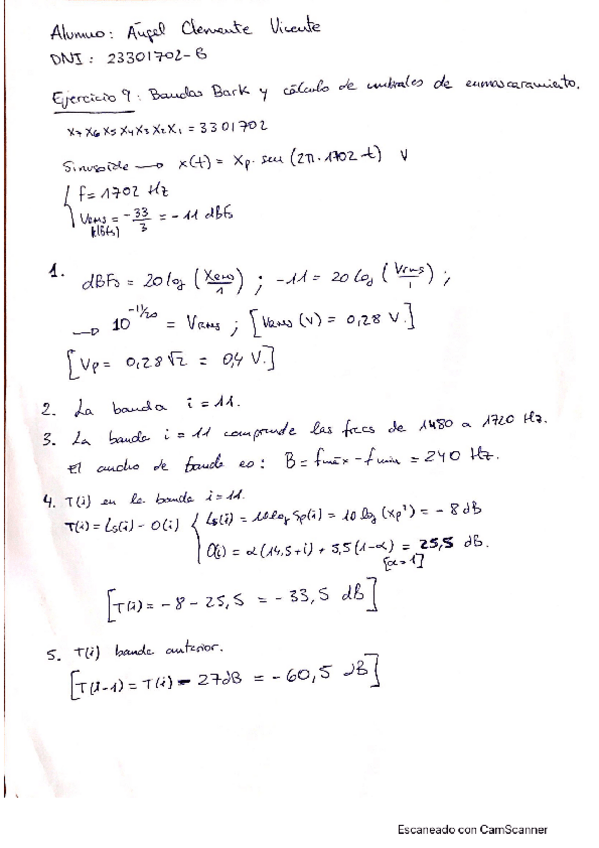 Alumno: Ángel Clemente Vicente
DNI: 23301702-B
Ejercicio 9: Bandas Bark y cálculo de umbrales de enmascaramiento.
X7X6X5X4X3X2X1 = 3301702
Sinusoide → x(t) = Xp. sen (2π·1702 t) V
f = 1702 Hz
Vrms = -33/3 = -11 dBFs
(dBFs)
1. dBFs = 20 log (Xrms/1) ; -11 = 20 log (Vrms/1) ;
→ 10^-11/20 = Vrms ; [Vrms (V) = 0,28 V.]
[Vp = 0,28√2 = 0,4 V.]
2. La banda i = 11.
3. La banda i = 11 comprende las frecs de 1480 a 1720 Hz.
El ancho de banda es: B = fmáx - fmin = 240 Hz.
4. T(i) en la banda i = 11.
T(i) = Ls(i) - O(i) { Ls(i) = 10 log Sp(i) = 10 log (Xp²) = -8 dB
O(i) = α(14,5+i) + 5,5(1-α) = 25,5 dB.
[α=1]
[T(i) = -8 - 25,5 = -33,5 dB]
5. T(i) banda anterior.
[T(i-1) = T(i) - 27dB = -60,5 dB]
Escaneado con CamScanner